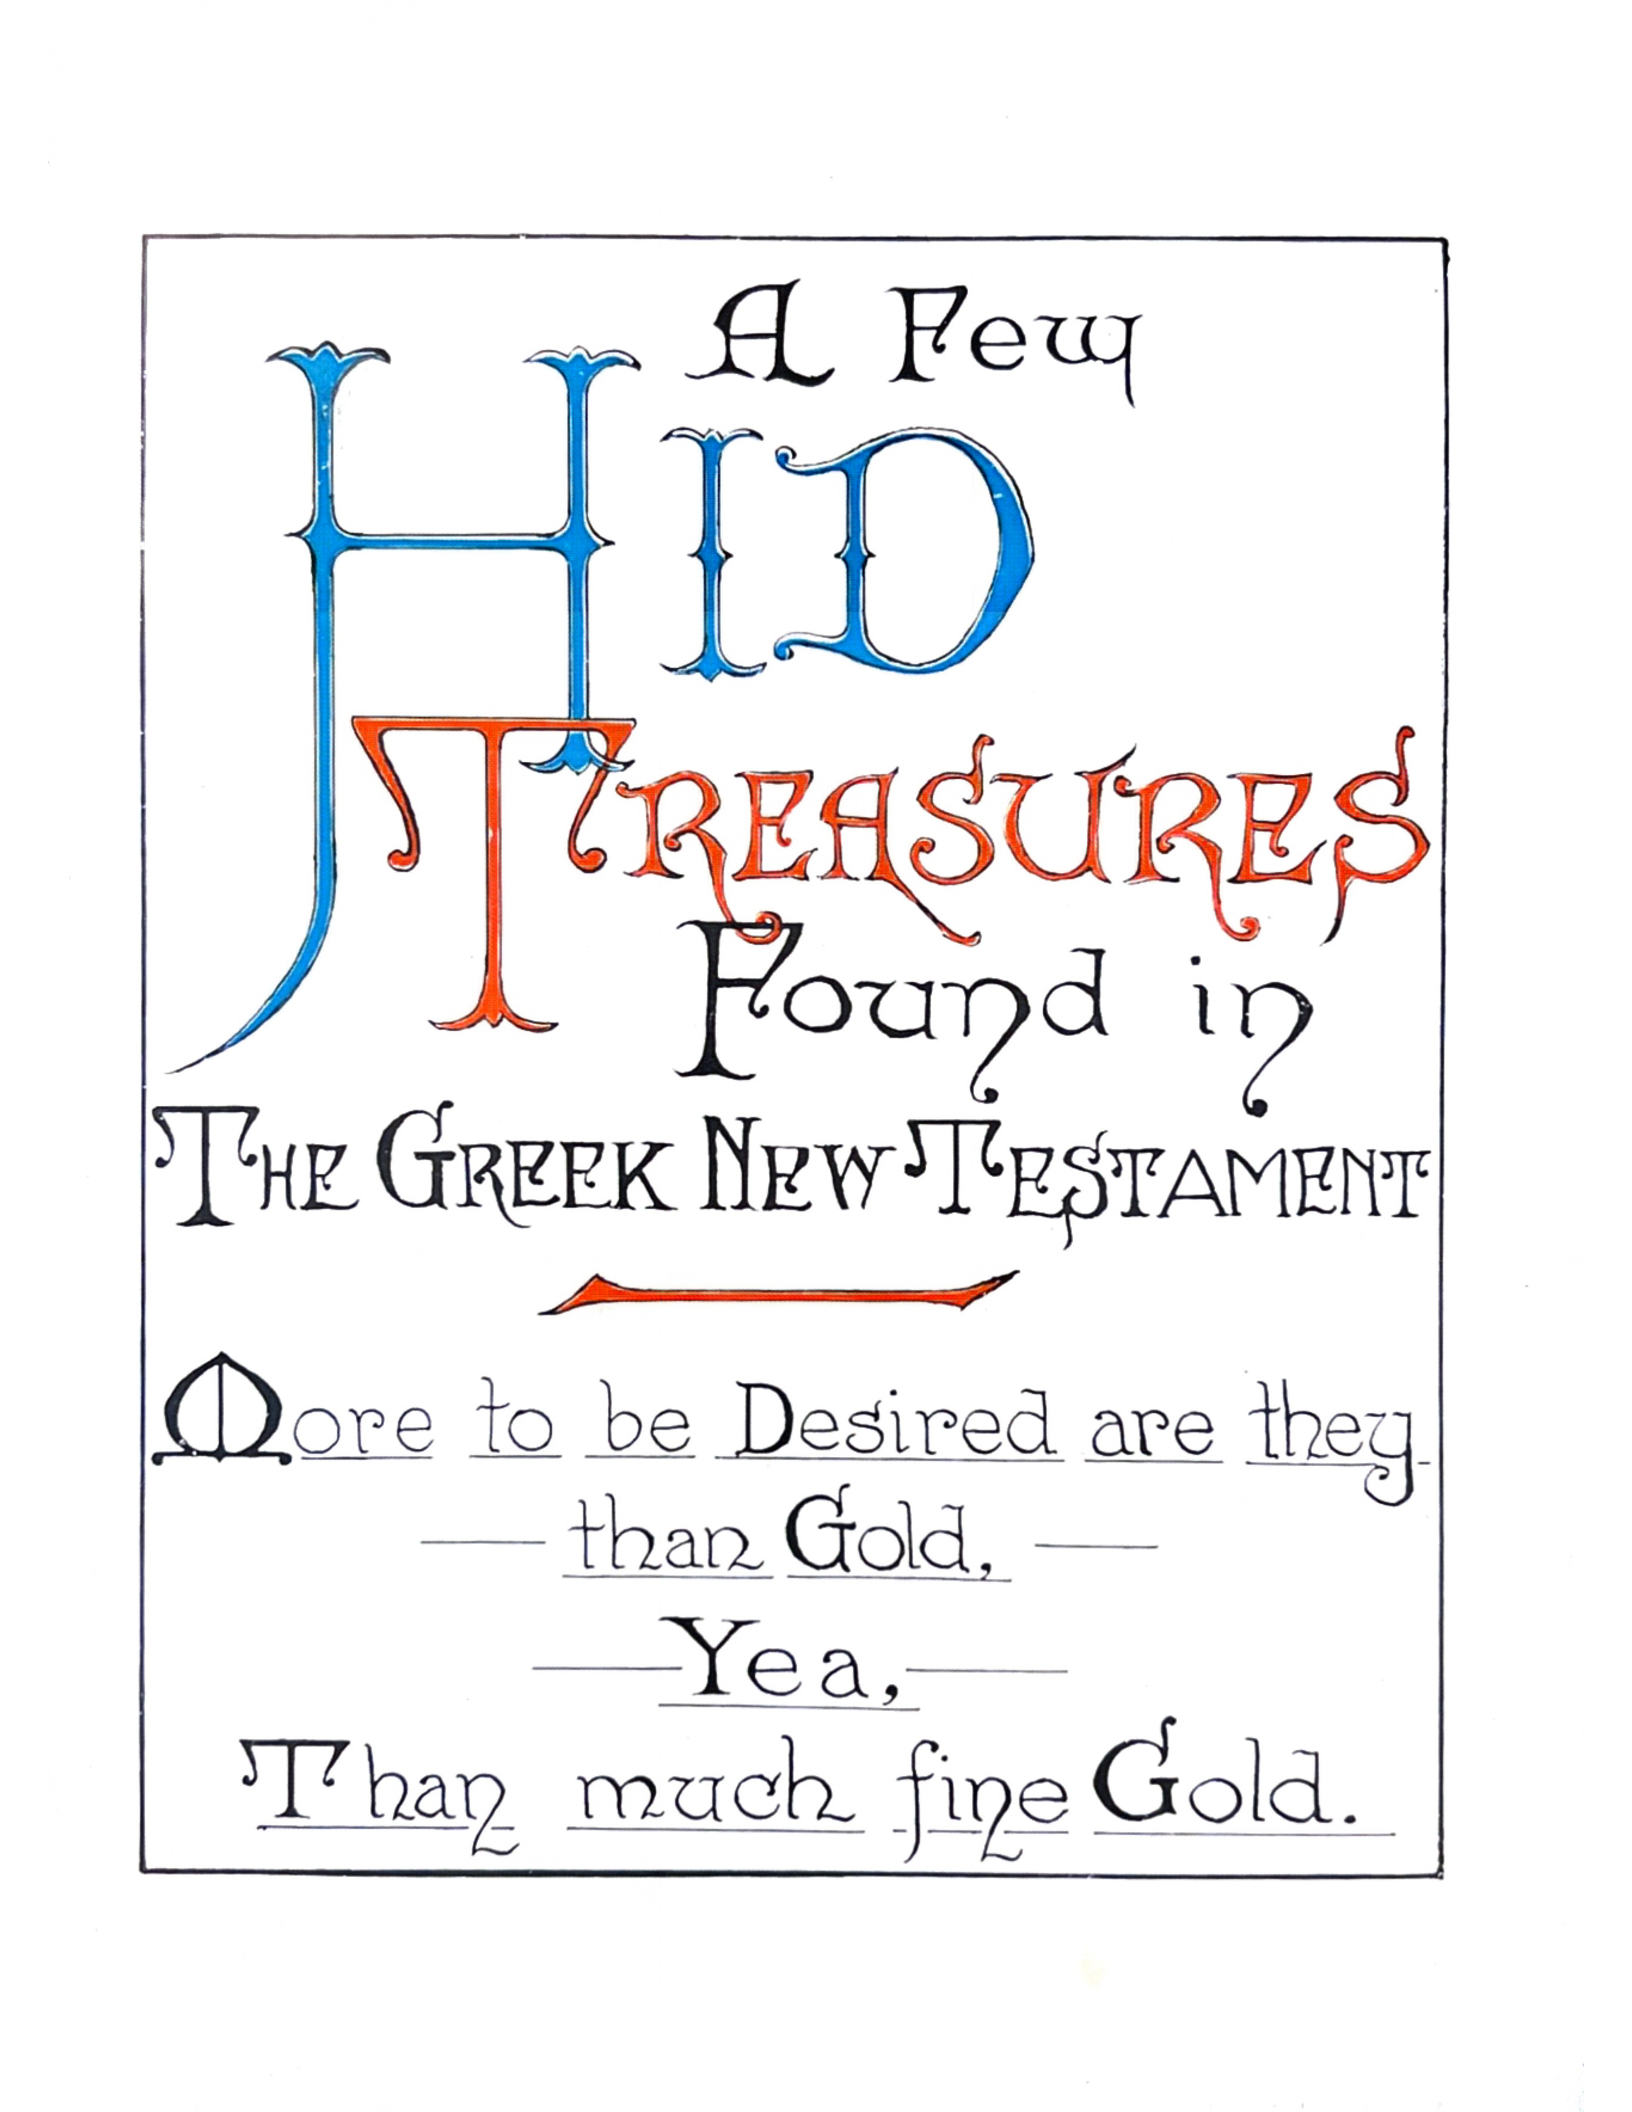 A Few
HID
TREASURES
Found in
THE GREEK NEW TESTAMENT
More to be Desired are they
than Gold,
Yea,
Than much fine Gold.